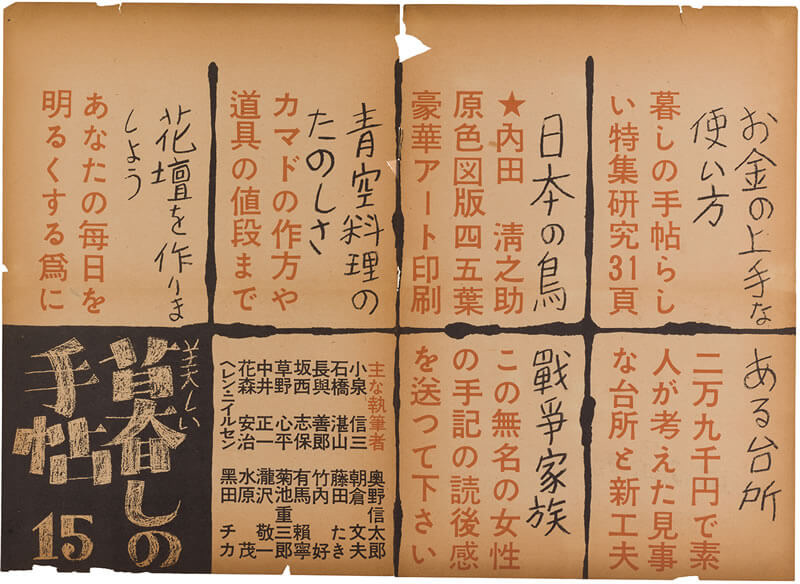 お金の上手な
使い方
暮しの手帖らし
い特集研究31頁
日本の鳥
★内田 淸之助
原色図版四五葉
豪華アート印刷
青空料理の
たのしさ
カマドの作方や
道具の値段まで
花壇を作りま
しよう
あなたの毎日を
明るくする爲に
ある台所
二万九千円で素
人が考えた見事
な台所と新工夫
戰爭家族
この無名の女性
の手記の読後感
を送つて下さい
主な執筆者
小泉 信三
石橋 湛山
長與 善郎
坂西 志保
草野 心平
中井 正一
花森 安治
ヘレン・ニイルセン
奥野信太郎
朝倉 文夫
藤田 たき
竹内 好
有馬 頼寧
菊池重三郎
瀧沢 敬一
水原 茂
黑田 チカ
美しい
暮しの
手帖
15